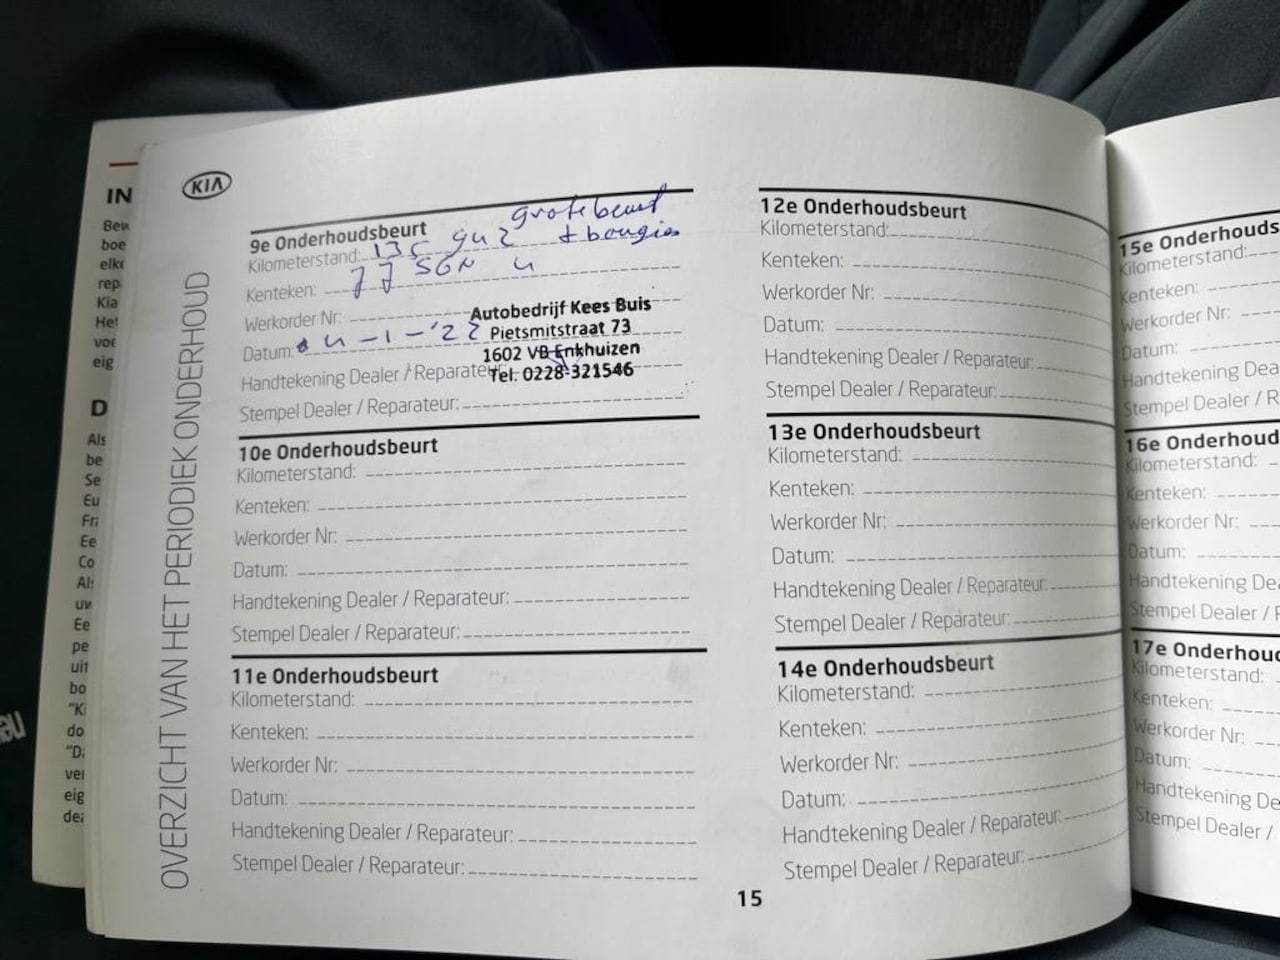 KIA
OVERZICHT VAN HET PERIODIEK ONDERHOUD
IN
Bew
boe
elke
rep
Kia
Het
voe
eig
D
Als
be
Se
Eu
Fra
Ee
Co
Als
uw
Ee
pe
uit
bo
"Ki
do
"D
ver
eig
dea
9e Onderhoudsbeurt grote beurt
Kilometerstand: 135 942 + bougies
Kenteken: 77 SGN 4
Werkorder Nr:
Datum: 4-1-'22
Handtekening Dealer / Reparateur:
Stempel Dealer / Reparateur:
Autobedrijf Kees Buis
Pietsmitstraat 73
1602 VB Enkhuizen
Tel. 0228-321546
10e Onderhoudsbeurt
Kilometerstand:
Kenteken:
Werkorder Nr:
Datum:
Handtekening Dealer / Reparateur:
Stempel Dealer / Reparateur:
11e Onderhoudsbeurt
Kilometerstand:
Kenteken:
Werkorder Nr:
Datum:
Handtekening Dealer / Reparateur:
Stempel Dealer / Reparateur:
12e Onderhoudsbeurt
Kilometerstand:
Kenteken:
Werkorder Nr:
Datum:
Handtekening Dealer / Reparateur:
Stempel Dealer / Reparateur:
13e Onderhoudsbeurt
Kilometerstand:
Kenteken:
Werkorder Nr:
Datum:
Handtekening Dealer / Reparateur:
Stempel Dealer / Reparateur:
14e Onderhoudsbeurt
Kilometerstand:
Kenteken:
Werkorder Nr:
Datum:
Handtekening Dealer / Reparateur:
Stempel Dealer / Reparateur:
15
15e Onderhouds
Kilometerstand:
Kenteken:
Werkorder Nr:
Datum:
Handtekening Dea
Stempel Dealer / R
16e Onderhoud
Kilometerstand:
Kenteken:
Werkorder Nr:
Datum:
Handtekening Dea
Stempel Dealer / F
17e Onderhoud
Kilometerstand:
Kenteken:
Werkorder Nr:
Datum:
Handtekening De
Stempel Dealer /